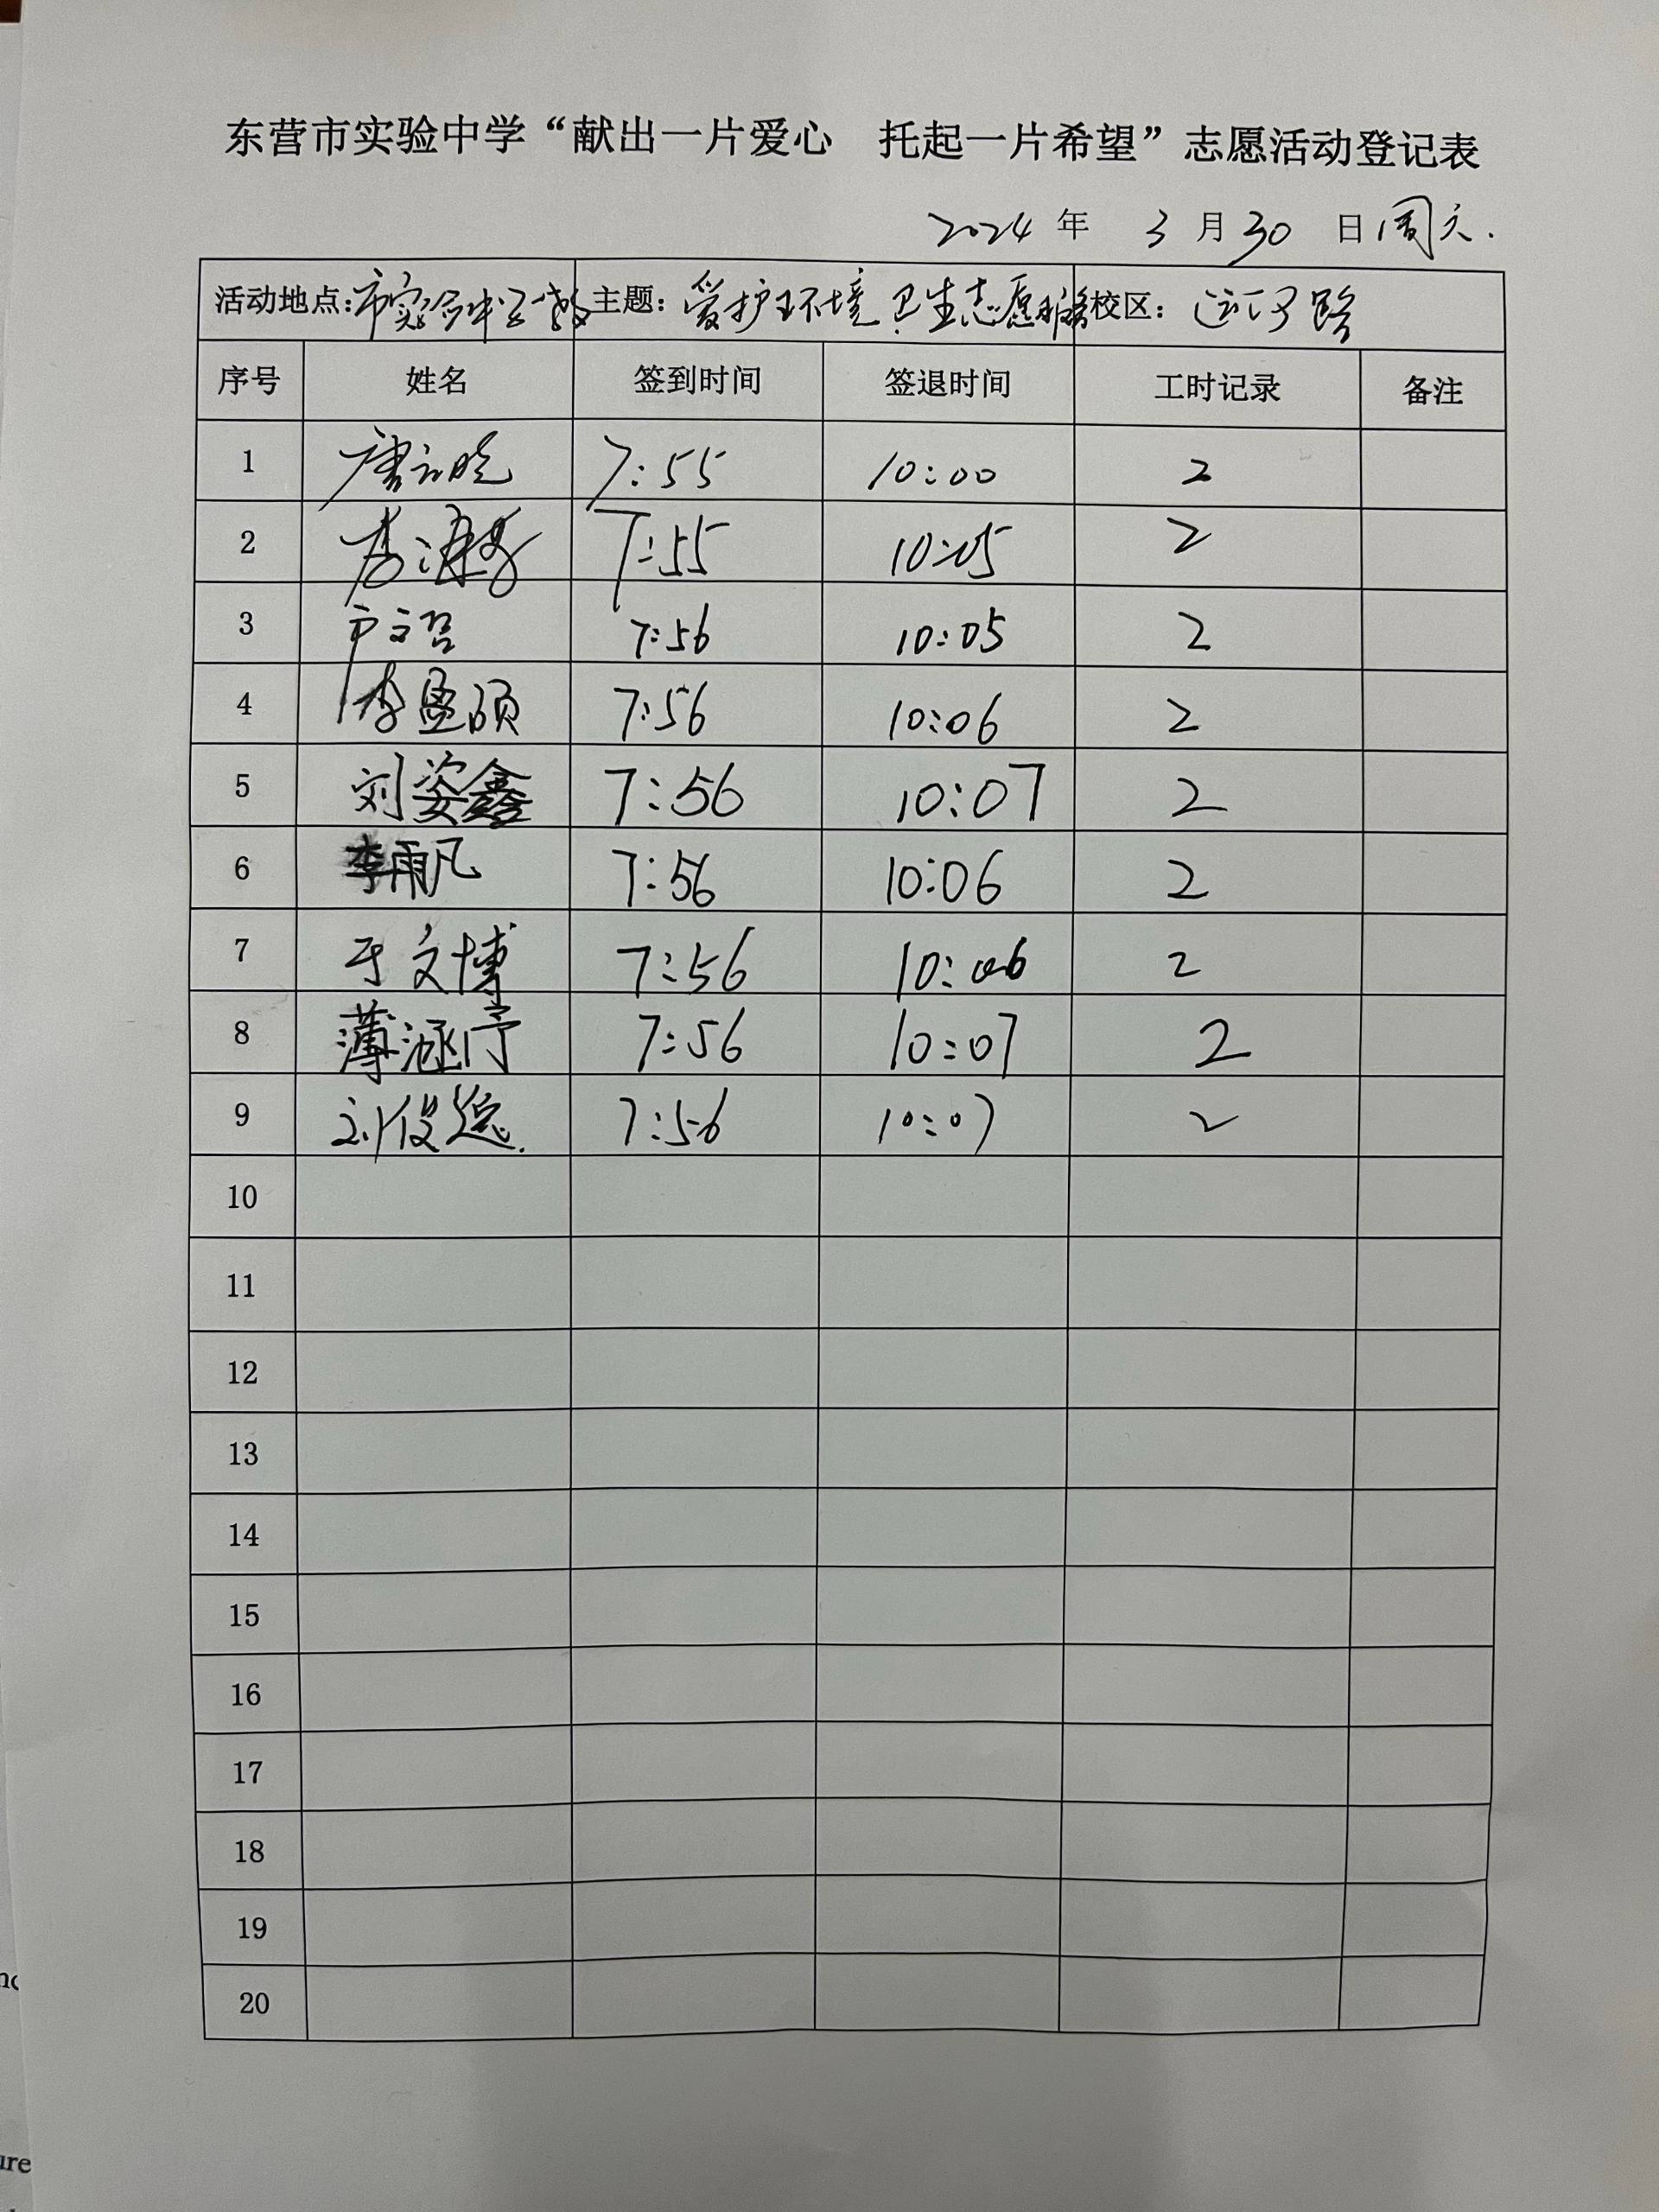 东营市实验中学“献出一片爱心 托起一片希望”志愿活动登记表
2024 年 3 月 30 日 周天.
活动地点: 市实验中学 主题: 爱护环境卫生志愿 校区: 运河路
序号 姓名 签到时间 签退时间 工时记录 备注
1 唐 晓 7:55 10:00 2
2 李 7:55 10:05 2
3 7:56 10:05 2
4 李盈硕 7:56 10:06 2
5 刘姿鑫 7:56 10:07 2
6 李雨凡 7:56 10:06 2
7 于文博 7:56 10:06 2
8 薄涵予 7:56 10:07 2
9 刘俊逸. 7:56 10:07 2
10
11
12
13
14
15
16
17
18
19
20
ure